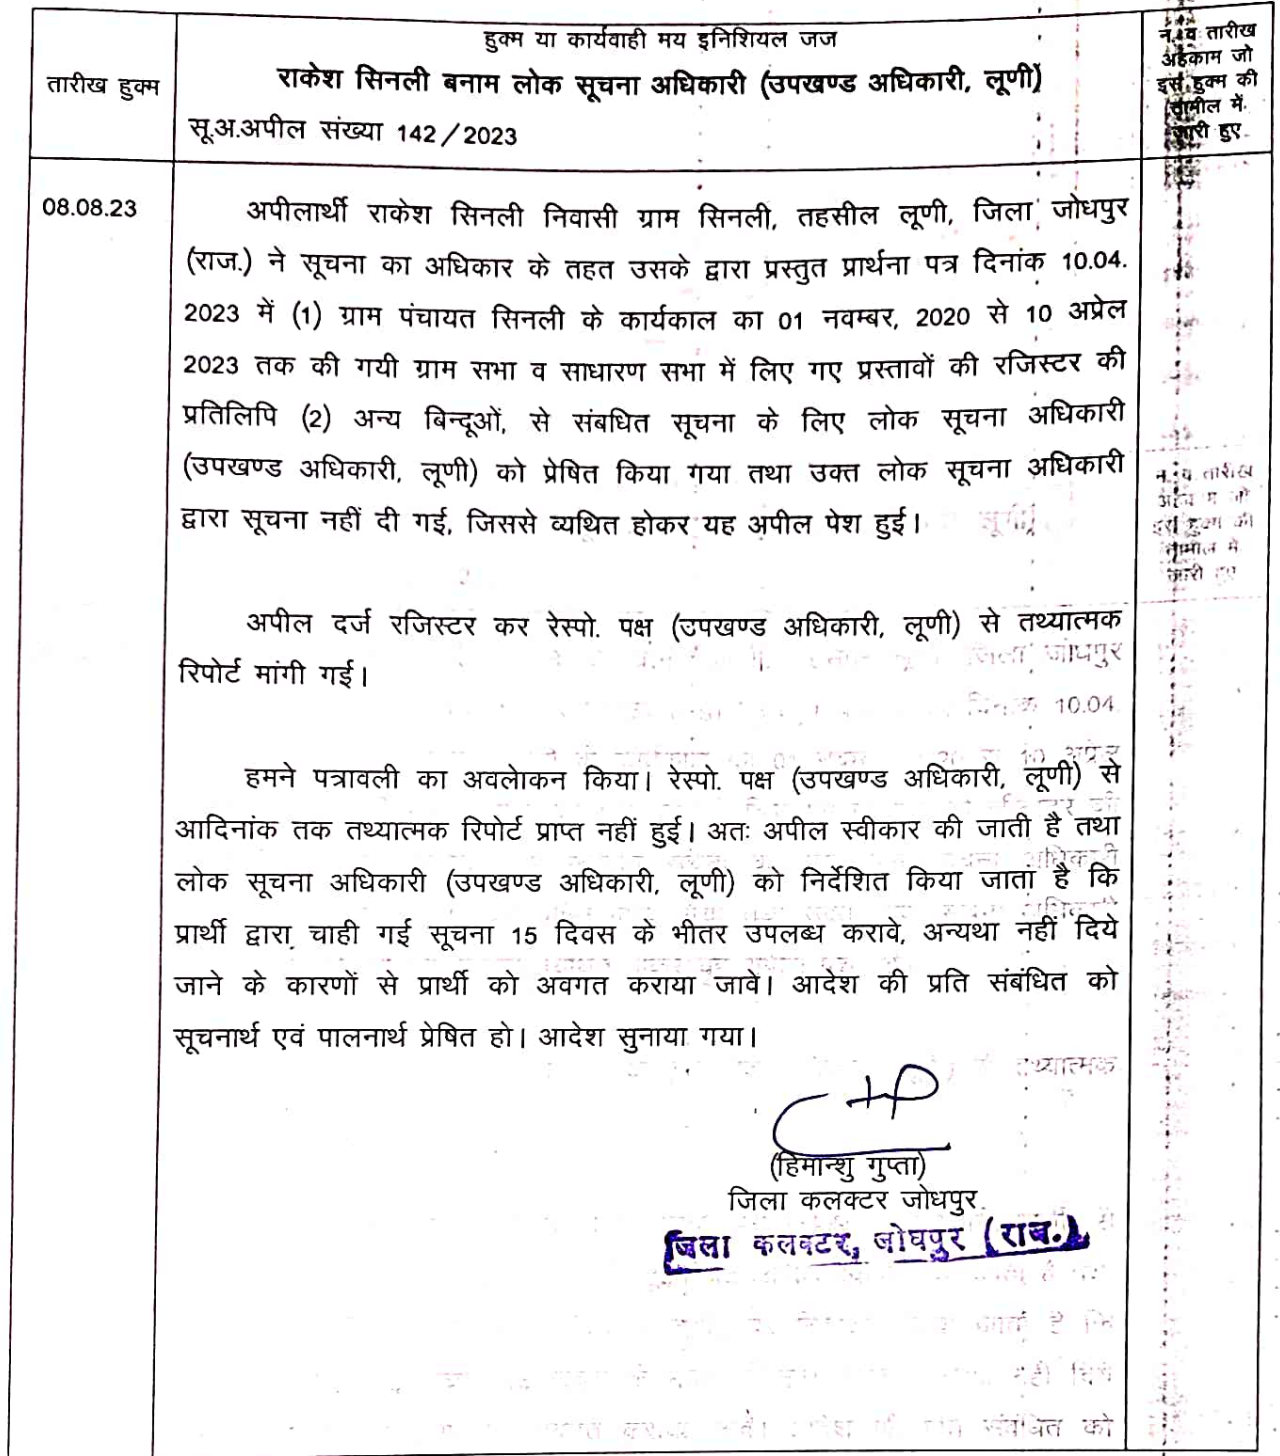 हुक्म या कार्यवाही मय इनिशियल जज
तारीख हुक्म
राकेश सिनली बनाम लोक सूचना अधिकारी (उपखण्ड अधिकारी, लूणी)
सू.अ.अपील संख्या 142/2023
न. व तारीख
अहकाम जो
इस हुक्म की
तामील में
जारी हुए
08.08.23
अपीलार्थी राकेश सिनली निवासी ग्राम सिनली, तहसील लूणी, जिला जोधपुर
(राज.) ने सूचना का अधिकार के तहत उसके द्वारा प्रस्तुत प्रार्थना पत्र दिनांक 10.04.
2023 में (1) ग्राम पंचायत सिनली के कार्यकाल का 01 नवम्बर, 2020 से 10 अप्रेल
2023 तक की गयी ग्राम सभा व साधारण सभा में लिए गए प्रस्तावों की रजिस्टर की
प्रतिलिपि (2) अन्य बिन्दूओं, से संबधित सूचना के लिए लोक सूचना अधिकारी
(उपखण्ड अधिकारी, लूणी) को प्रेषित किया गया तथा उक्त लोक सूचना अधिकारी
द्वारा सूचना नहीं दी गई, जिससे व्यथित होकर यह अपील पेश हुई।
अपील दर्ज रजिस्टर कर रेस्पो. पक्ष (उपखण्ड अधिकारी, लूणी) से तथ्यात्मक
रिपोर्ट मांगी गई।
हमने पत्रावली का अवलोकन किया। रेस्पो. पक्ष (उपखण्ड अधिकारी, लूणी) से
आदिनांक तक तथ्यात्मक रिपोर्ट प्राप्त नहीं हुई। अतः अपील स्वीकार की जाती है तथा
लोक सूचना अधिकारी (उपखण्ड अधिकारी, लूणी) को निर्देशित किया जाता है कि
प्रार्थी द्वारा चाही गई सूचना 15 दिवस के भीतर उपलब्ध करावे, अन्यथा नहीं दिये
जाने के कारणों से प्रार्थी को अवगत कराया जावे। आदेश की प्रति संबंधित को
सूचनार्थ एवं पालनार्थ प्रेषित हो। आदेश सुनाया गया।
(हिमान्शु गुप्ता)
जिला कलक्टर जोधपुर
जिला कलक्टर, जोधपुर (राज.)